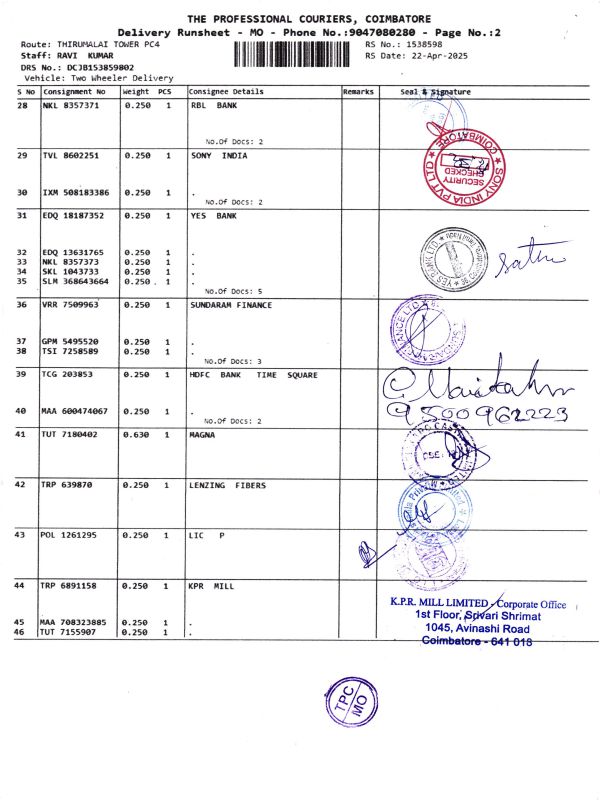 THE PROFESSIONAL COURIERS, COIMBATORE
Delivery Runsheet - MO - Phone No.:9047080280 - Page No.:2
Route: THIRUMALAI TOWER PC4 RS No.: 1538598
Staff: RAVI KUMAR RS Date: 22-Apr-2025
DRS No.: DCJB153859802
Vehicle: Two Wheeler Delivery
S No Consignment No Weight PCS Consignee Details Remarks Seal & Signature
28 NKL 8357371 0.250 1 RBL BANK
No.Of Docs: 2
29 TVL 8602251 0.250 1 SONY INDIA
SONY INDIA PVT LTD ★ COIMBATORE ★
SECURITY CHECKED
30 IXM 508183386 0.250 1 .
No.Of Docs: 2
31 EDQ 18187352 0.250 1 YES BANK
YES BANK LTD
32 EDQ 13631765 0.250 1 .
33 NKL 8357373 0.250 1 .
34 SKL 1043733 0.250 1 .
35 SLM 368643664 0.250 . 1 .
No.Of Docs: 5
36 VRR 7509963 0.250 1 SUNDARAM FINANCE
37 GPM 5495520 0.250 1 .
38 TSI 7258589 0.250 1 .
No.Of Docs: 3
39 TCG 203853 0.250 1 HDFC BANK TIME SQUARE
40 MAA 600474067 0.250 1 .
No.Of Docs: 2
9500962223
41 TUT 7180402 0.630 1 MAGNA
42 TRP 639870 0.250 1 LENZING FIBERS
43 POL 1261295 0.250 1 LIC P
44 TRP 6891158 0.250 1 KPR MILL
K.P.R. MILL LIMITED - Corporate Office
1st Floor, Srivari Shrimat
1045, Avinashi Road
Coimbatore - 641 018
45 MAA 708323885 0.250 1 .
46 TUT 7155907 0.250 1 .
TPC
MO